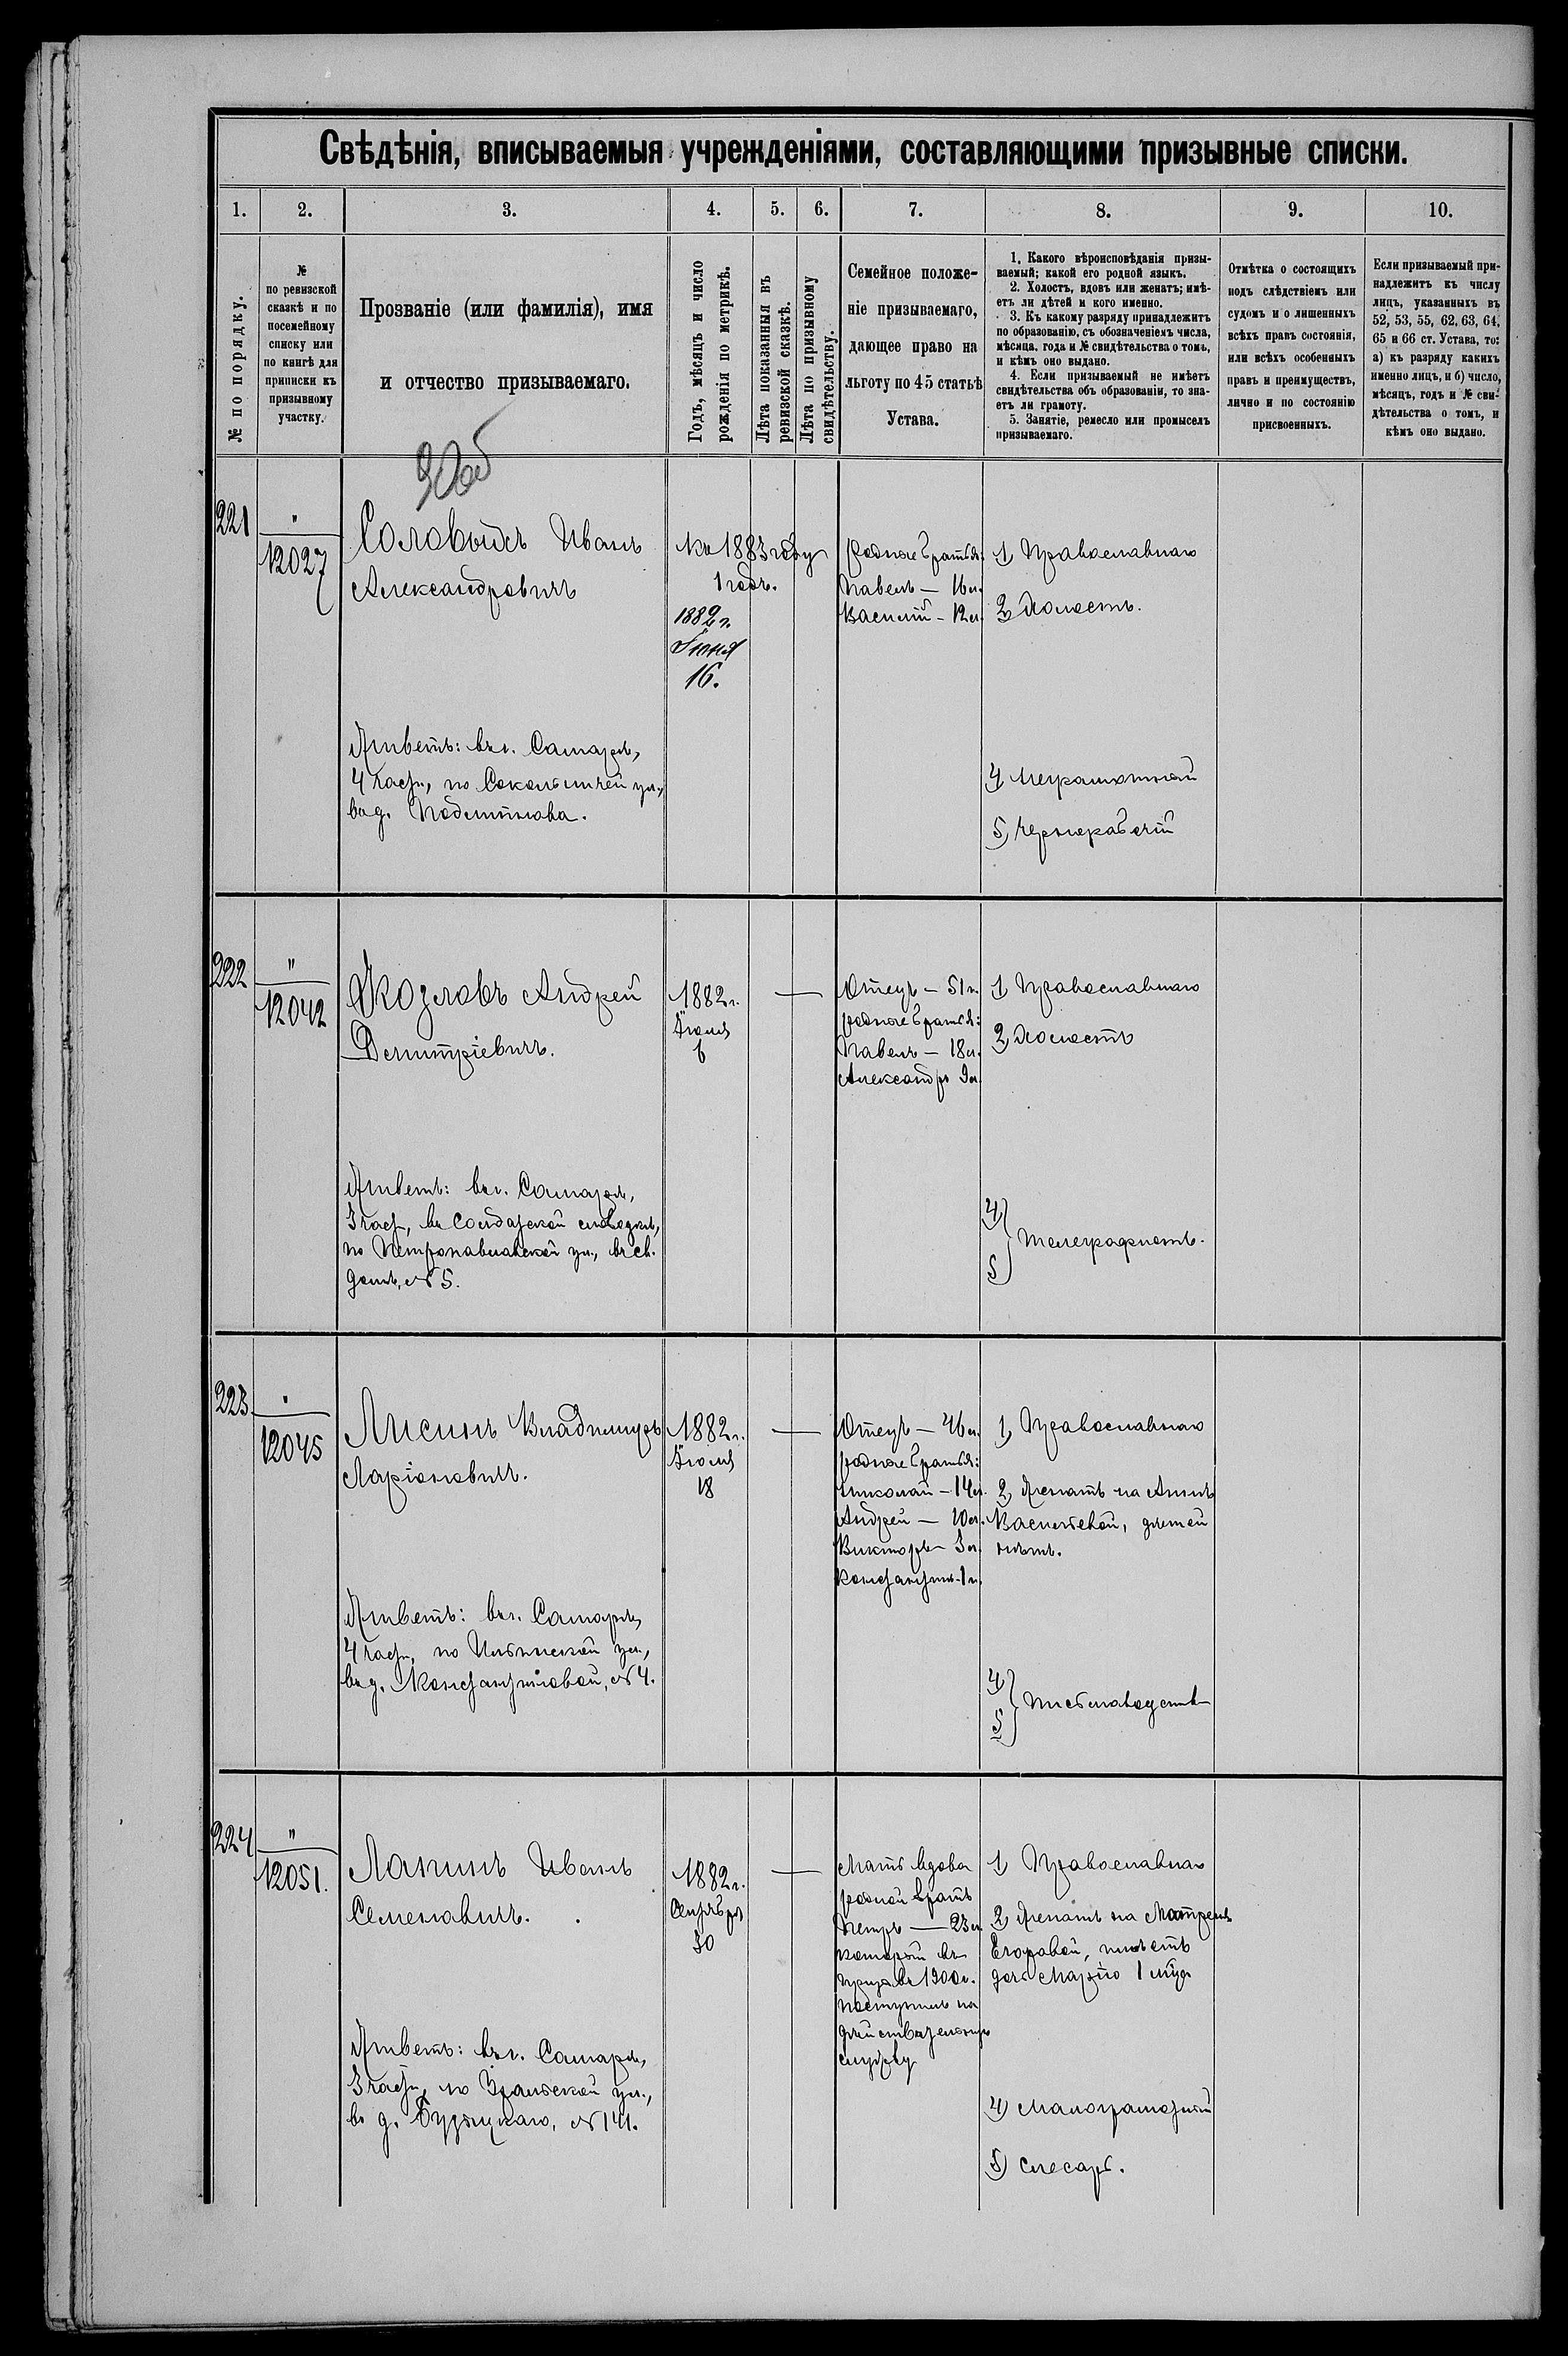 Свѣдѣнія, вписываемыя учрежденіями, составляющими призывные списки.
1. 2. 3. 4. 5. 6. 7. 8. 9. 10.
№ по порядку.
№
по ревизской
сказкѣ и по
посемейному
списку или
по книгѣ для
приписки къ
призывному
участку.
Прозваніе (или фамилія), имя
и отчество призываемаго.
Годъ, мѣсяцъ и число
рожденія по метрикѣ.
Лѣта показанныя въ
ревизской сказкѣ.
Лѣта по призывному
свидѣтельству.
Семейное положе-
ніе призываемаго,
дающее право на
льготу по 45 статьѣ
Устава.
1. Какого вѣроисповѣданія призы-
ваемый; какой его родной языкъ.
2. Холостъ, вдовъ или женатъ; имѣ-
етъ ли дѣтей и кого именно.
3. Къ какому разряду принадлежитъ
по образованію, съ обозначеніемъ числа,
мѣсяца, года и № свидѣтельства о томъ,
и кѣмъ оно выдано.
4. Если призываемый не имѣетъ
свидѣтельства объ образованіи, то зна-
етъ ли грамоту.
5. Занятіе, ремесло или промыселъ
призываемаго.
Отмѣтка о состоящихъ
подъ слѣдствіемъ или
судомъ и о лишенныхъ
всѣхъ правъ состоянія,
или всѣхъ особенныхъ
правъ и преимуществъ,
лично и по состоянію
присвоенныхъ.
Если призываемый при-
надлежитъ къ числу
лицъ, указанныхъ въ
52, 53, 55, 62, 63, 64,
65 и 66 ст. Устава, то:
а) къ разряду какихъ
именно лицъ, и б) число,
мѣсяцъ, годъ и № сви-
дѣтельства о томъ, и
кѣмъ оно выдано.
221
"
12027
Соловьевъ Иванъ
Александровичъ
Къ 1883 году
1 годъ.
1882 г.
Іюня
16.
Родные братья:
Павелъ — 16 л.
Василій — 12 л.
1) Православнаго
2) Холостъ.
Живетъ: въ г. Самарѣ,
4 части, по Сокольничей ул.,
въ д.
4) Неграмотный
5) Чернорабочій
222
"
12042
Козловъ Андрей
Дмитріевичъ.
1882 г.
6
Отецъ — 51 г.
родные братья:
Павелъ — 18 л.
Александръ 9 л.
1) Православнаго
2) Холостъ
Живетъ: въ г. Самарѣ,
3 части, въ Солдатской слободкѣ,
по Петропавловской ул., въ св.
домѣ, № 5.
4)
5) Телеграфистъ.
223.
"
12045
Лисинъ Владимиръ
Ларіоновичъ.
1882 г.
18
Отецъ — 46 л.
родные братья:
Николай — 14 л.
Андрей — 10 л.
Викторъ — 3 л.
Константинъ - 1 г.
1) Православнаго
2) Женатъ на Аннѣ
Васильевой, дѣтей
нѣтъ.
Живетъ: въ г. Самарѣ,
4 части, по Ильинской ул.,
въ д. Константиновой, № 4.
4)
5) Письмоводств.
224
"
12051.
Лапинъ Иванъ
Семеновичъ.
1882 г.
Сентября
30
Мать вдова
родной братъ
Петръ — 23 л.
который въ
1900 г.
поступилъ на
дѣйствительную
службу
1) Православнаго
2) Женатъ на Матренѣ
Егоровой, имѣетъ
дочь Марію 1 мѣс.
Живетъ: въ г. Самарѣ,
3 части, по Уральской ул.,
въ д. № 141.
4) Малограмотный
5) Слесарь.